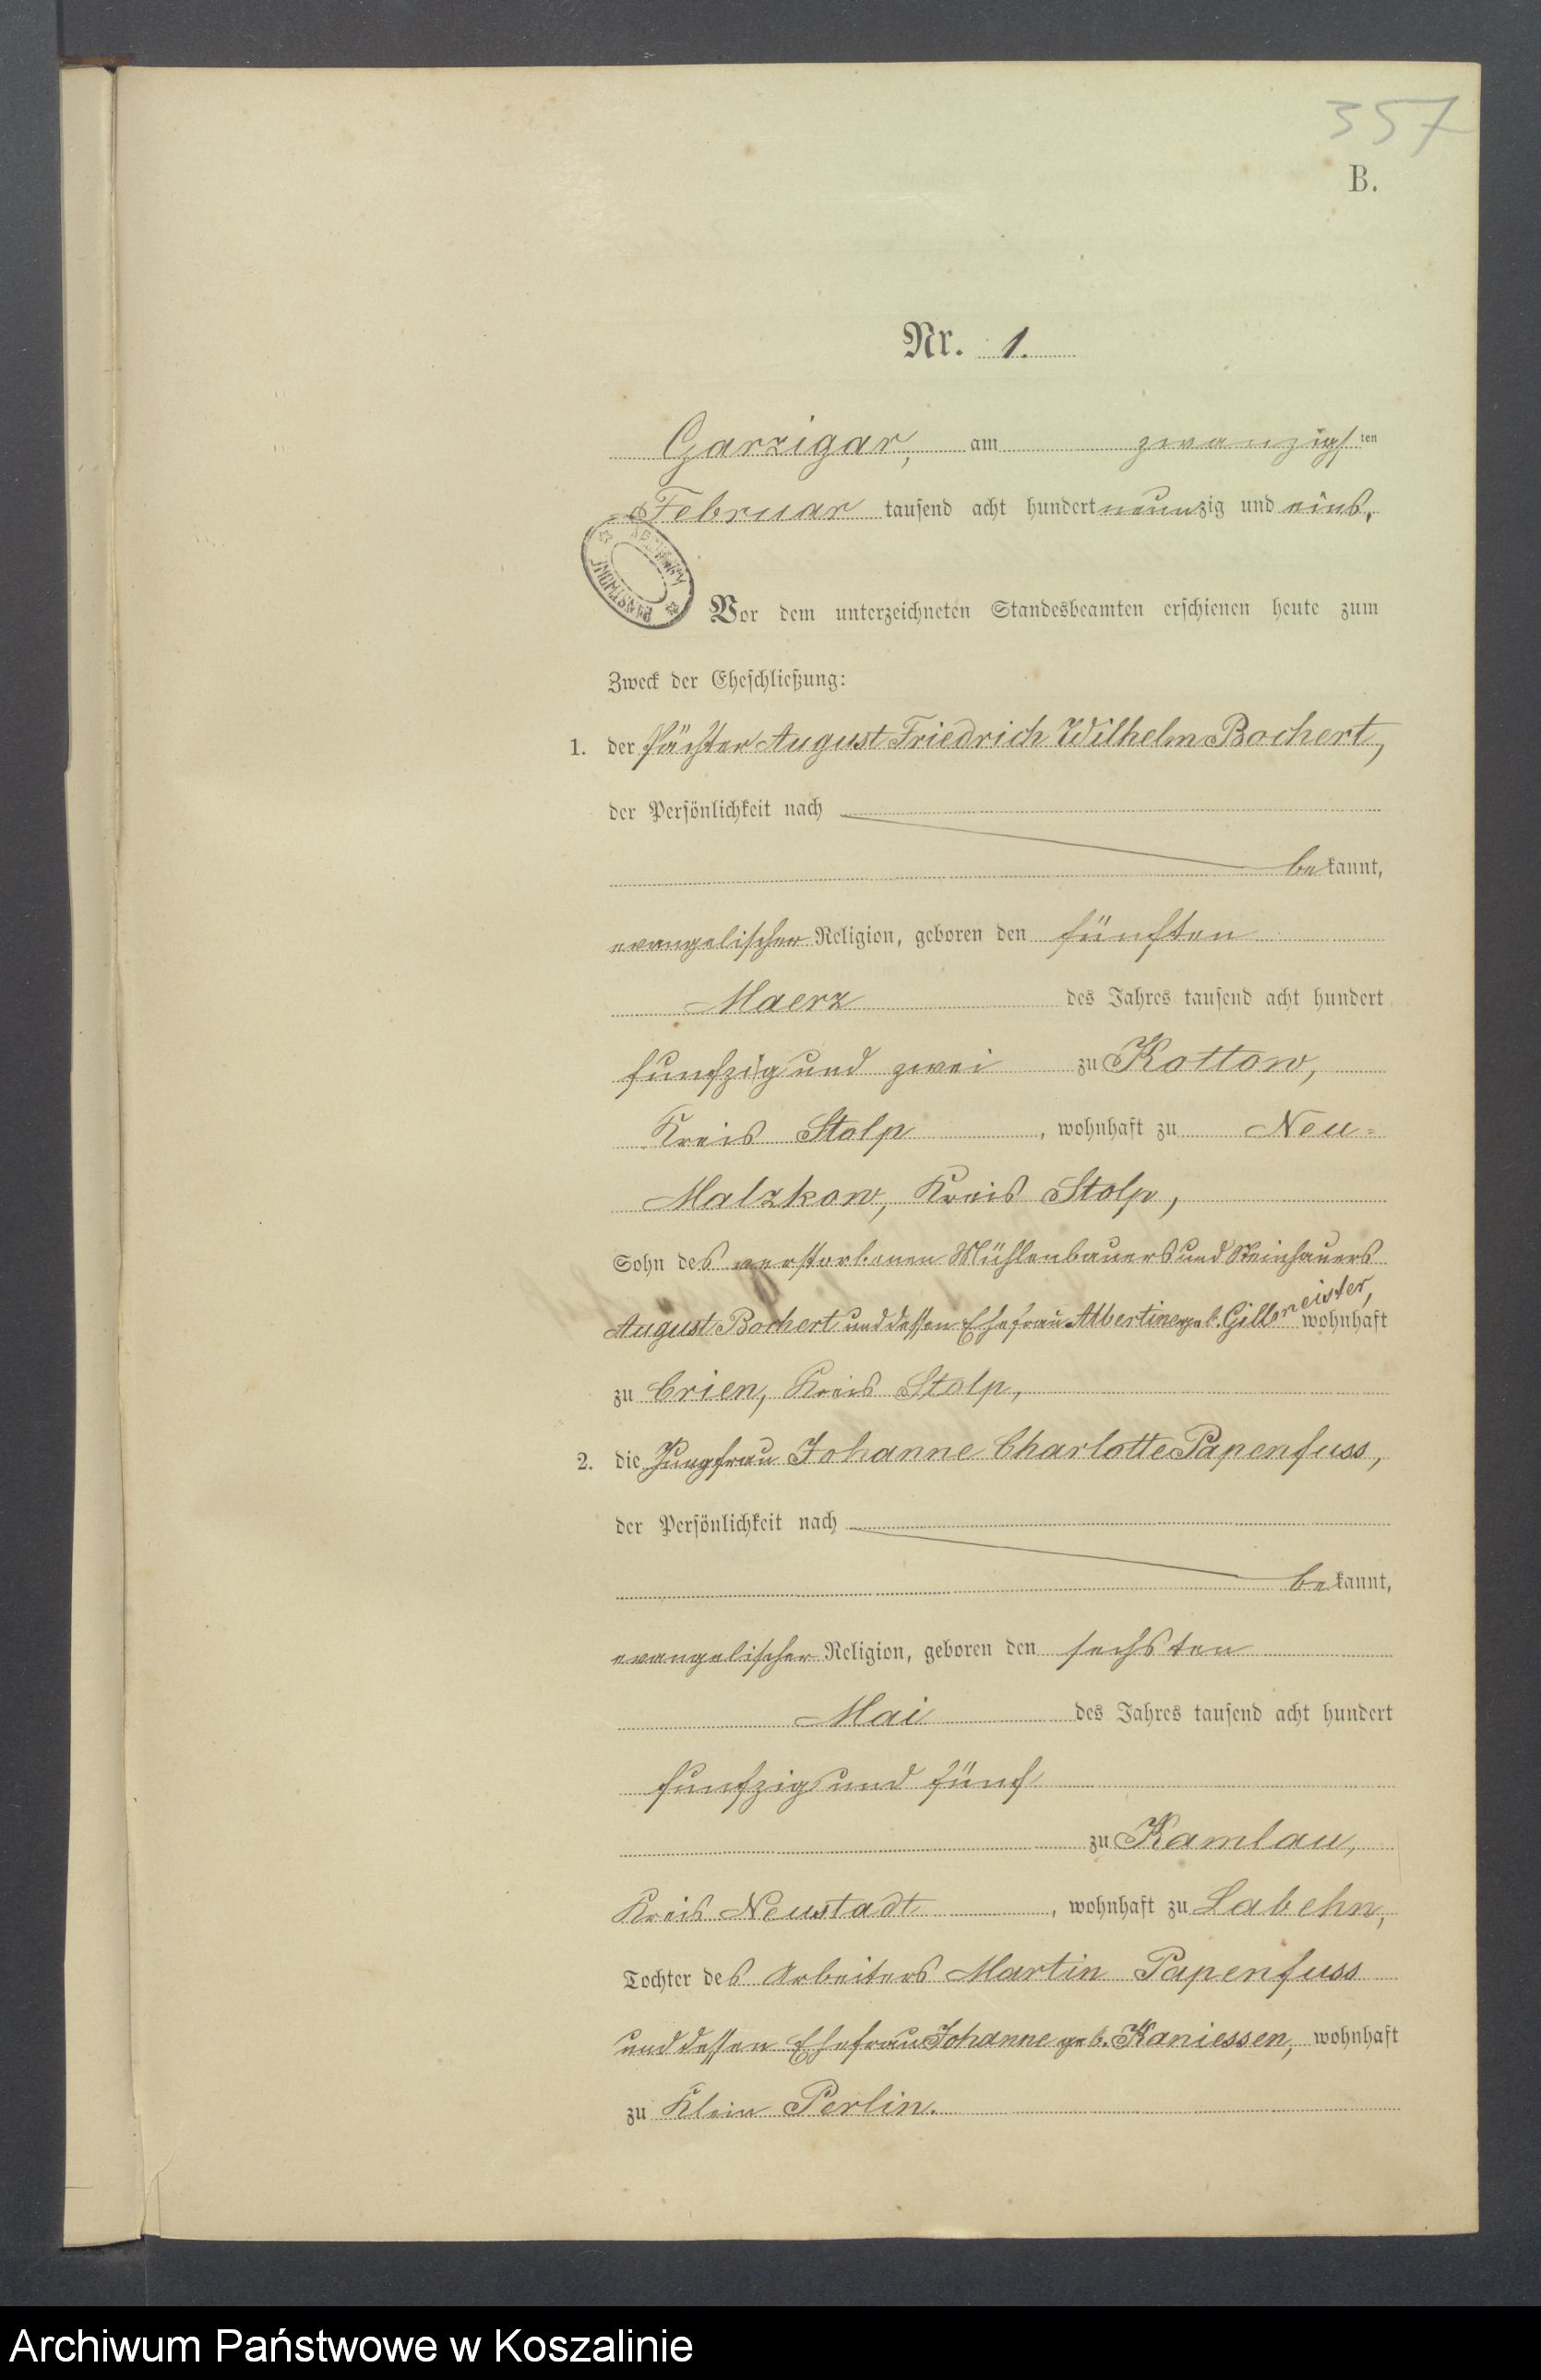 357
B.
Nr. 1.
Garzigar, am zwanzigsten
Februar tausend acht hundert neunzig und eins.
Vor dem unterzeichneten Standesbeamten erschienen heute zum
Zweck der Eheschließung:
1. der Pächter August Friedrich Wilhelm Bochert,
der Persönlichkeit nach
bekannt,
evangelischer Religion, geboren den fünften
Maerz des Jahres tausend acht hundert
funfzig und zwei zu Kottow,
Kreis Stolp, wohnhaft zu Neu-
Malzkow, Kreis Stolp,
Sohn des verstorbenen Mühlenbauers und Steinhauers
August Bochert und dessen Ehefrau Albertine geb. Gillmeister, wohnhaft
zu Crien, Kreis Stolp,
2. die Jungfrau Johanne Charlotte Papenfuss,
der Persönlichkeit nach
bekannt,
evangelischer Religion, geboren den sechsten
Mai des Jahres tausend acht hundert
funfzig und fünf
zu Kamlau,
Kreis Neustadt, wohnhaft zu Labehn,
Tochter des Arbeiters Martin Papenfuss
und dessen Ehefrau Johanne geb. Kaniessen, wohnhaft
zu Klein Perlin.
Archiwum Państwowe w Koszalinie